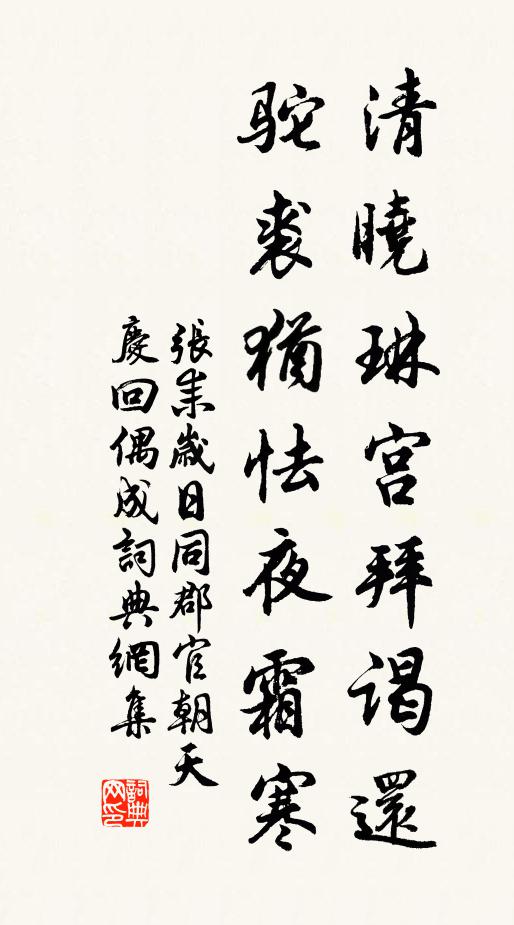 清曉琳宮拜謁還
駝裘猶怯夜霜寒
張耒歲日同郡官朝天
慶回偶成詞典網集
詞典
网印